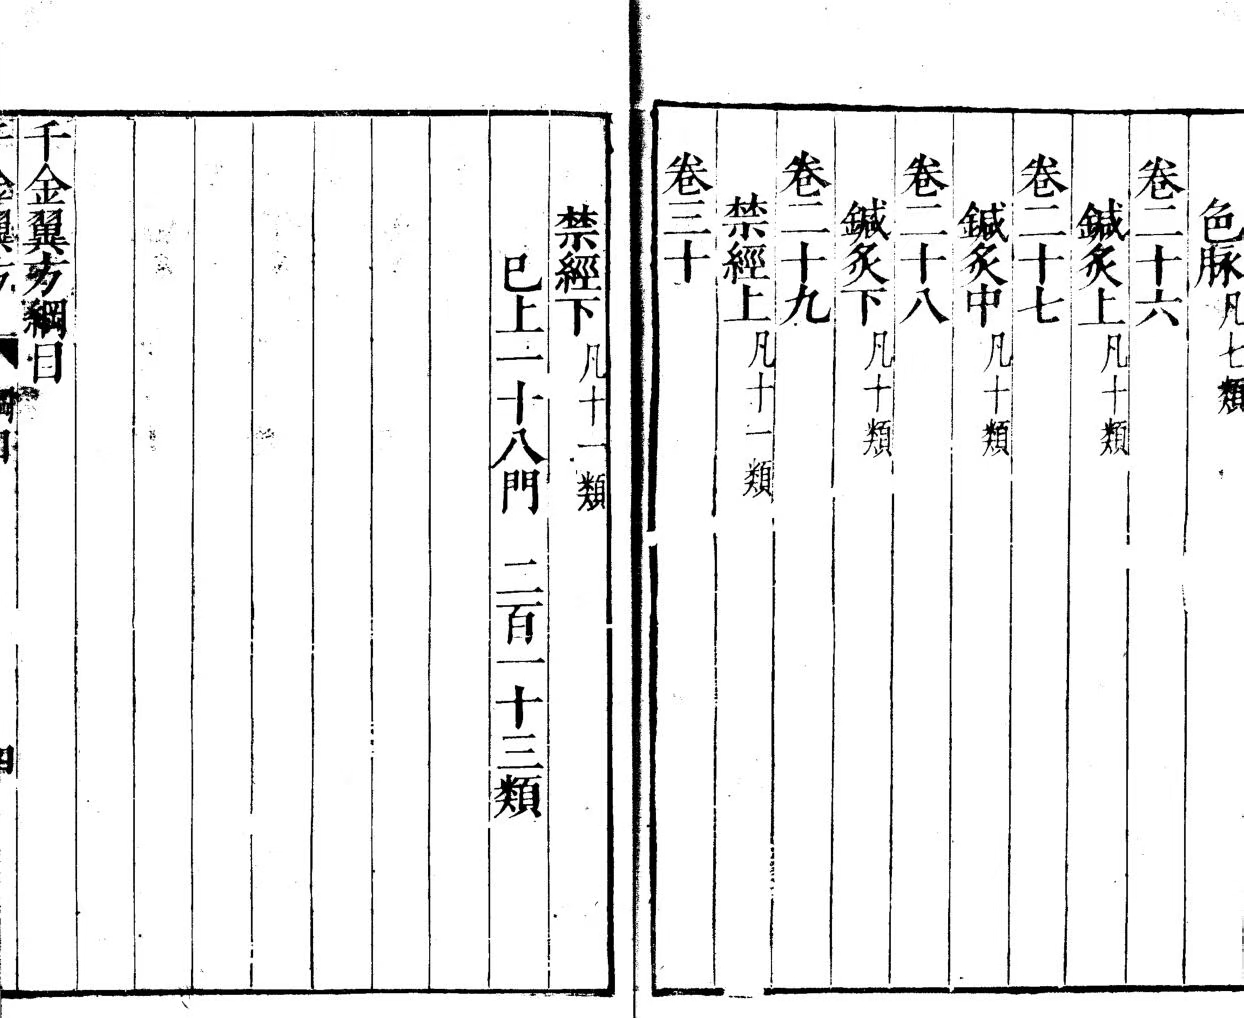 色脈凡七類
卷二十六
鍼灸上凡十類
卷二十七
鍼灸中凡十類
卷二十八
鍼灸下凡十類
卷二十九
禁經上凡十一類
卷三十
禁經下凡十一類
已上一十八門　二百一十三類
千金翼方綱目